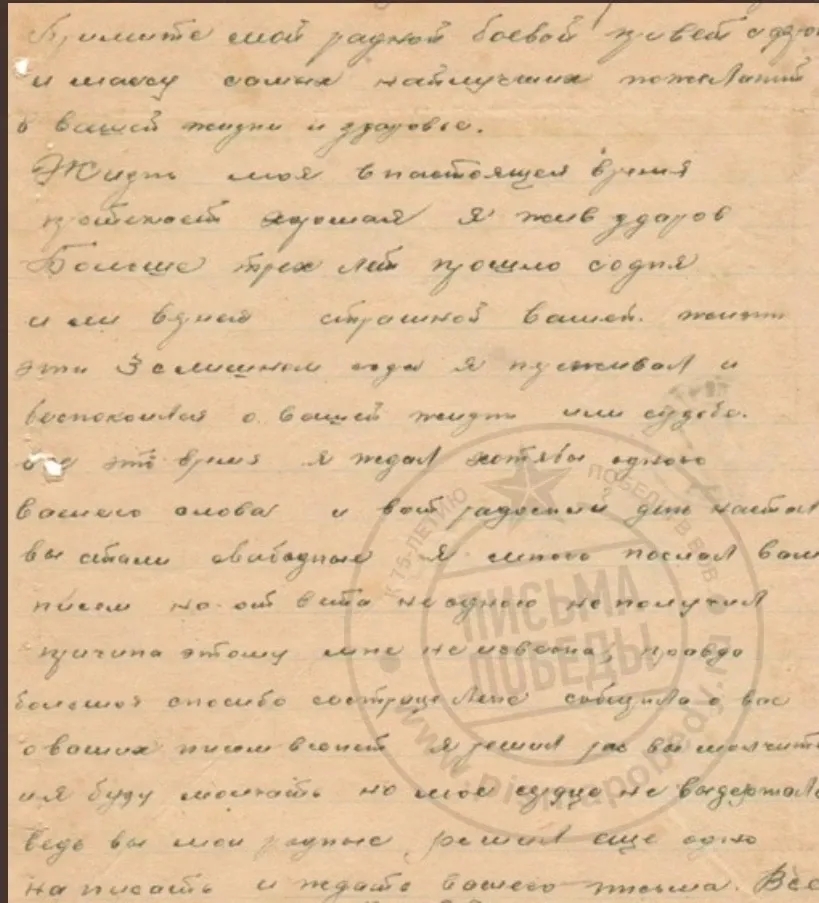 Примите мой радной боевой привет
и массу самых наилучших пожеланий
в вашей жизни и здаровье.
Жизнь моя в настоящея время
протекает хорошая я жив здаров
Больше трех лет прошло содня
страшной вашей жизни
эти 3 слишном года я
беспокоился о вашей жизни или судобе.
все это время я ждал хотябы одного
вашего слова и вот радосный день настал
вы стали свабодные я много послал вам
писем но ответа не одного не получил
причина этому мне не известна, правда
большоя спасибо сестрице Лене сабщила о вас
о ваших писем всенет я решил раз вы молчите
и я буду молчать но мое сердце не выдержало
ведь вы мои родные решил еще одно
написать и ждать вашего письма. Все
К 75-ЛЕТИЮ ПОБЕДЫ В ВОВ
ПИСЬМА
ПОБЕДЫ
www.pismapobedy.ru